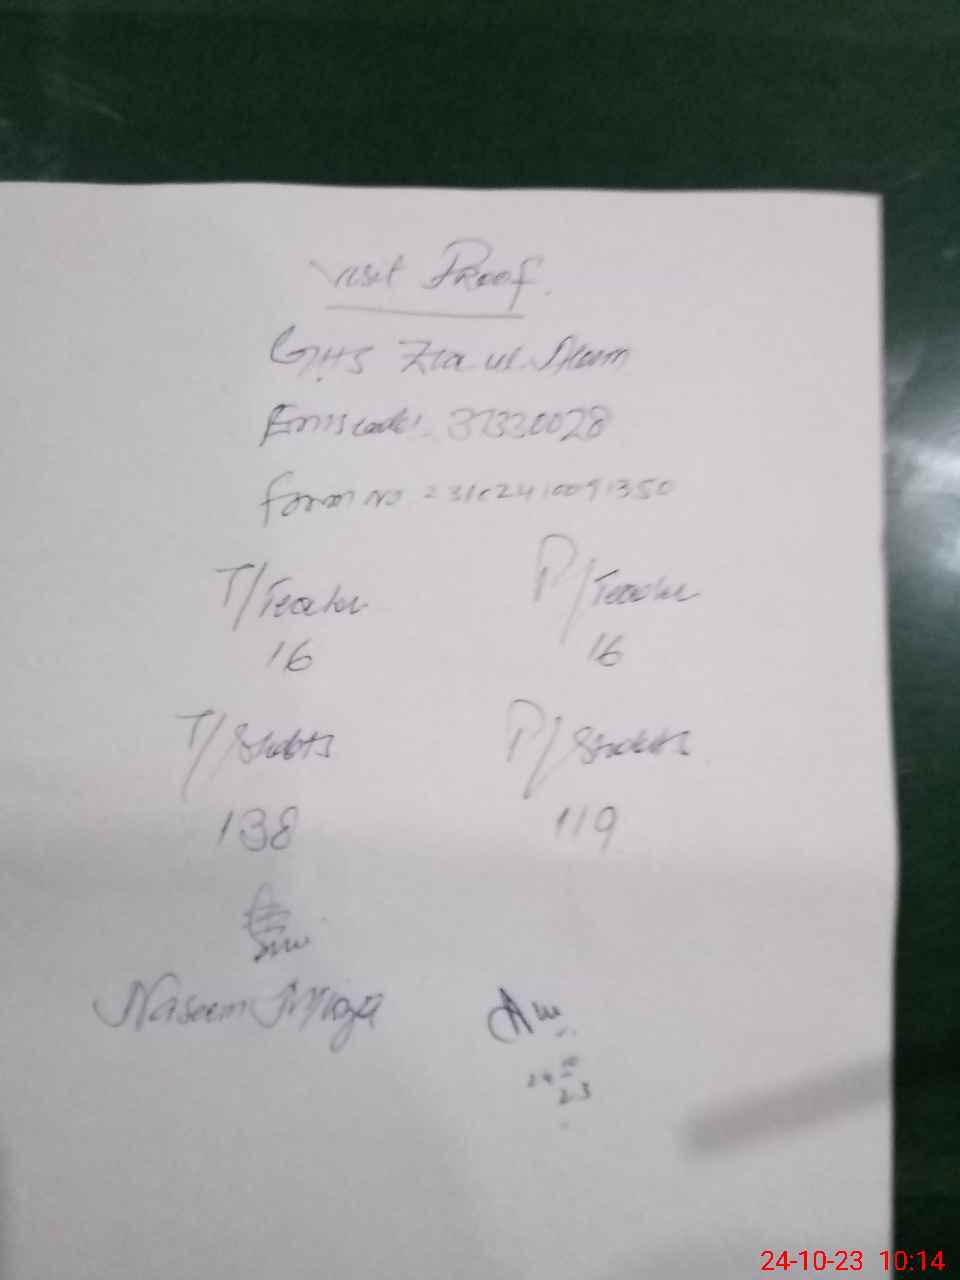 Visit Proof.
GHS Zia ul
Emis code: 37330028
form no 23102410091350
T/Teacher P/Teacher
16 16
T/Studets P/Studets
138 119
Naseem
24 10
23
24-10-23 10:14